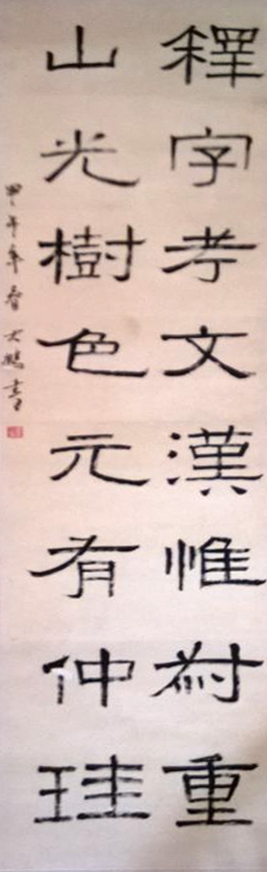 釋字考文漢惟叔重
山光樹色元有仲珪
甲午年春大鵬書